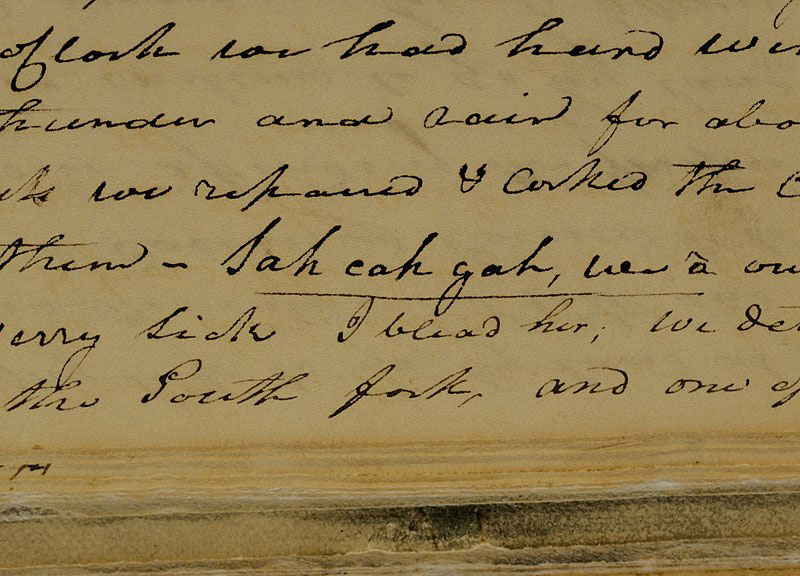 oClock we had hard win
thunder and rain for abo
we repared & Corked the C
them - Sah cah gah, we â our
verry sick I blead her; we det
the South fork, and one of